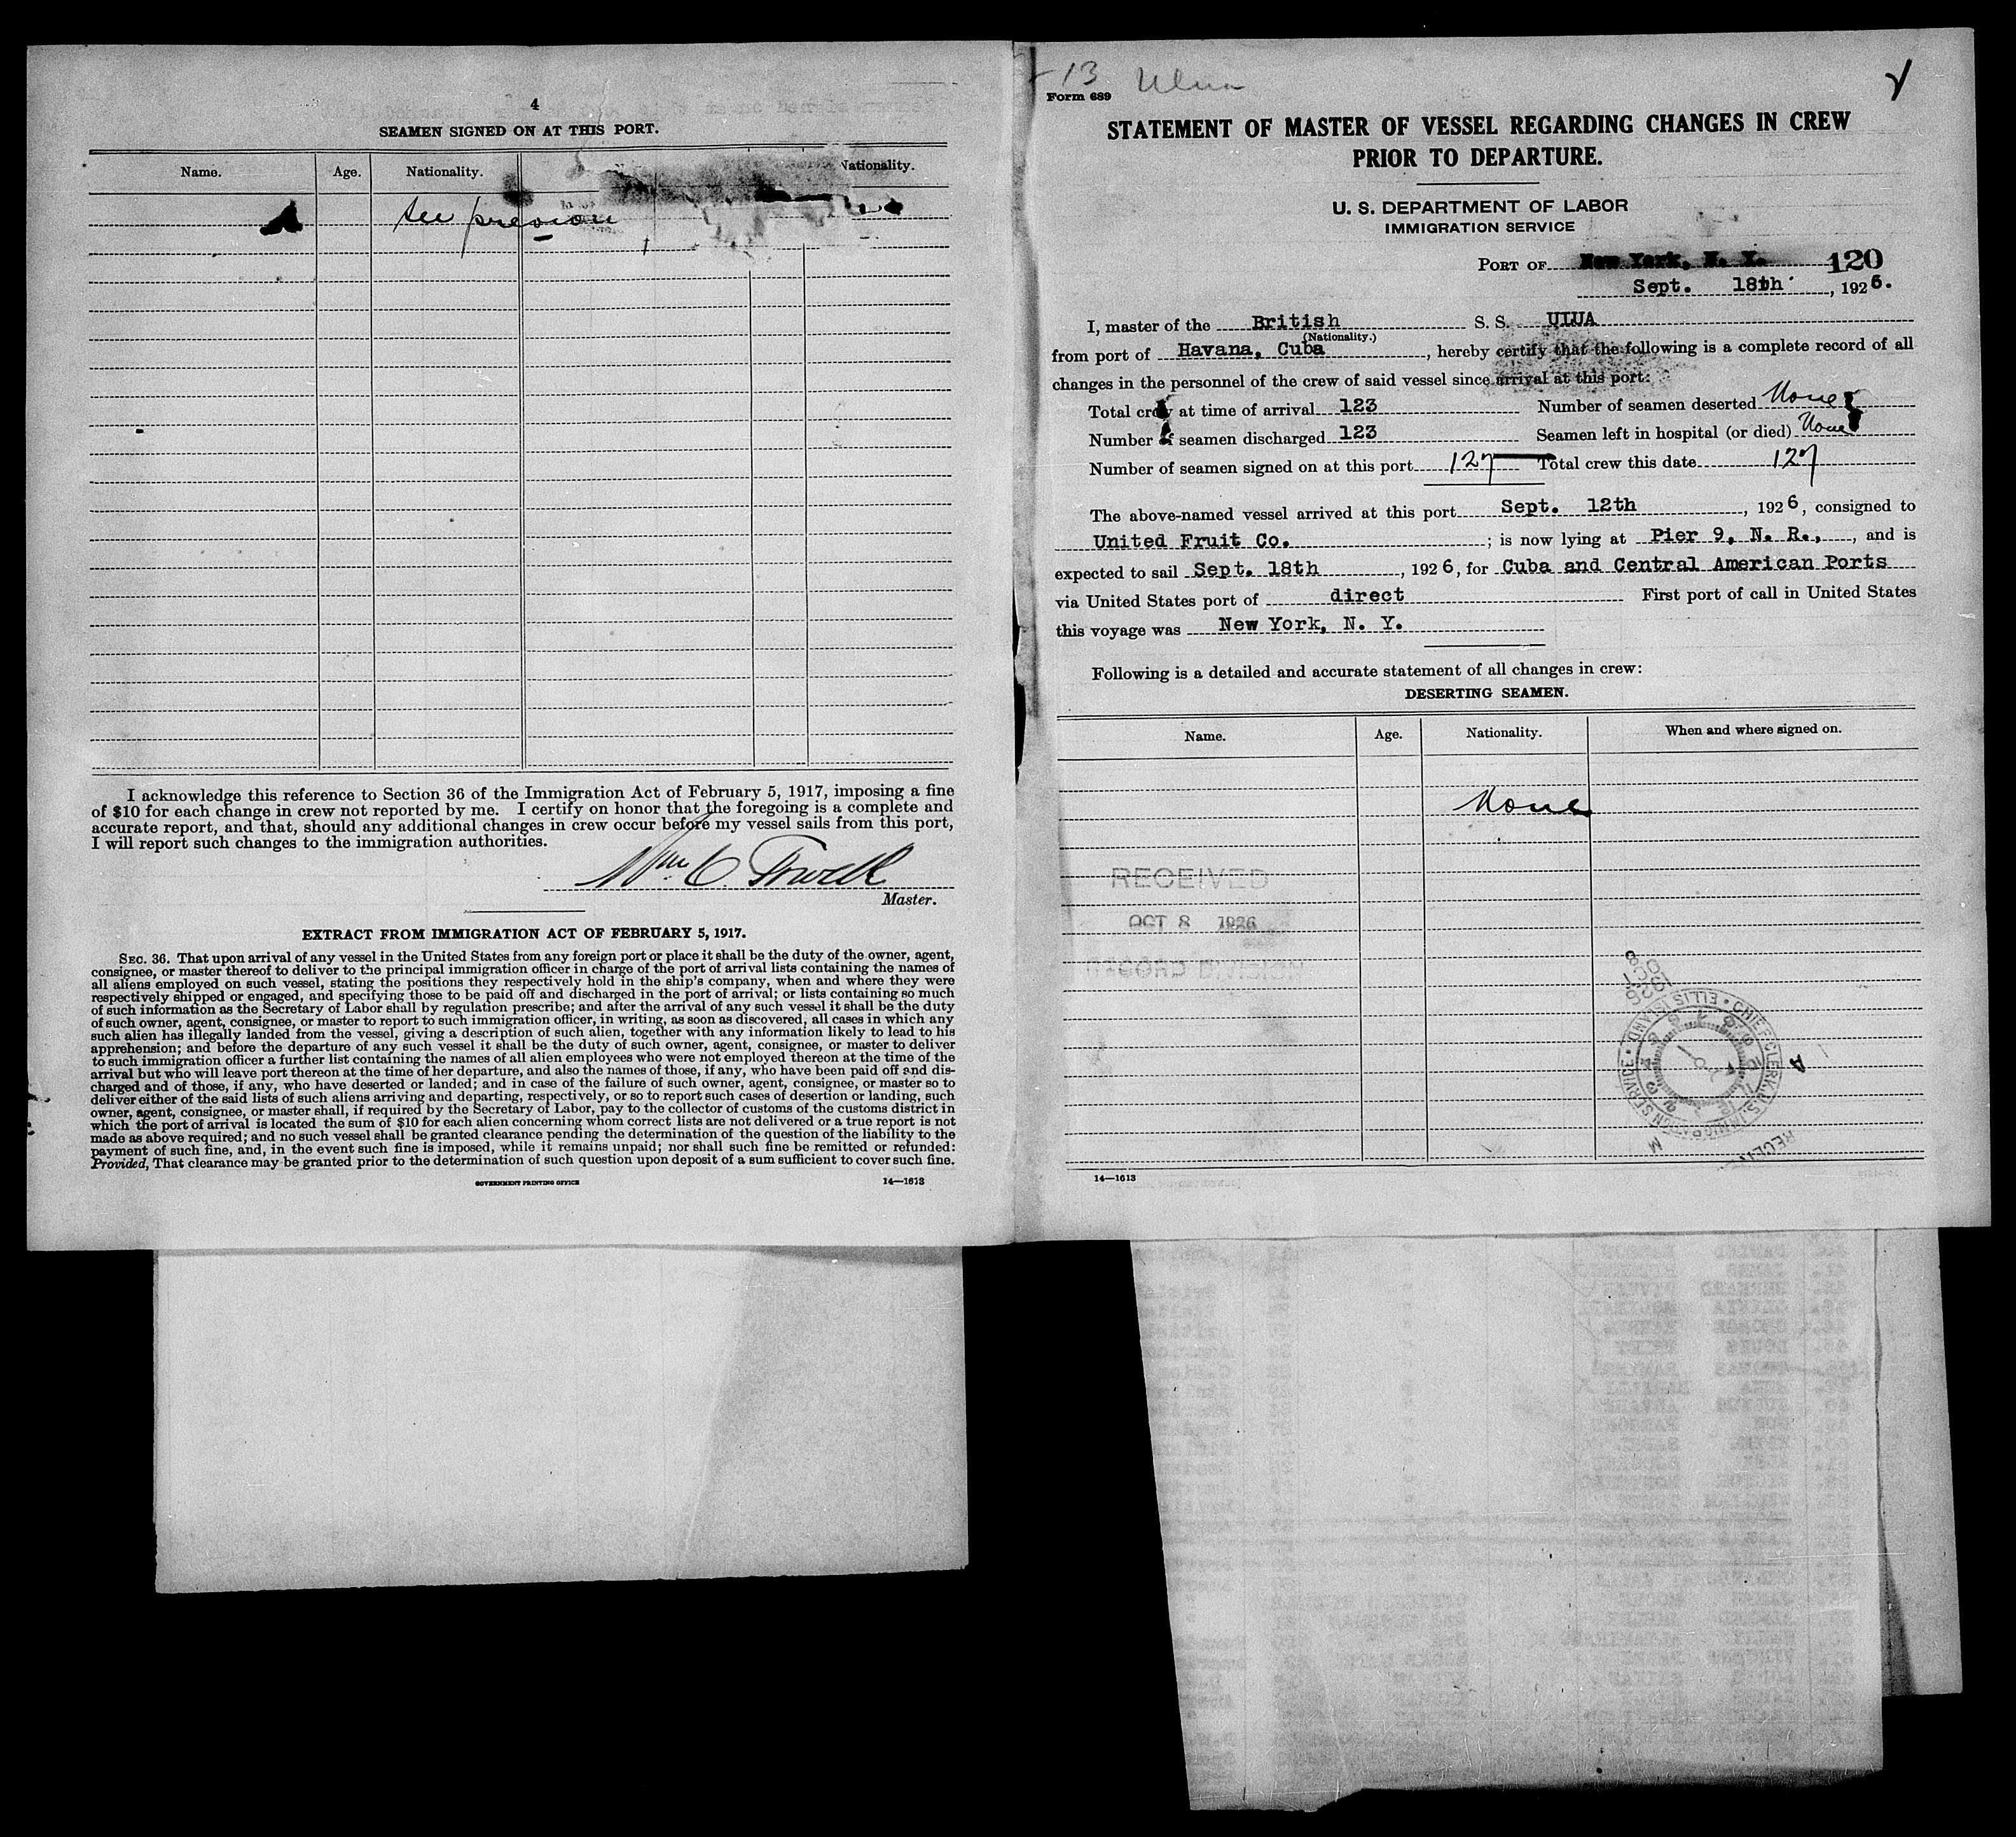 4
SEAMEN SIGNED ON AT THIS PORT.
Name. Age. Nationality. Nationality.
see previous
I acknowledge this reference to Section 36 of the Immigration Act of February 5, 1917, imposing a fine
of $10 for each change in crew not reported by me. I certify on honor that the foregoing is a complete and
accurate report, and that, should any additional changes in crew occur before my vessel sails from this port,
I will report such changes to the immigration authorities.
Wm. C. Towell
Master.
EXTRACT FROM IMMIGRATION ACT OF FEBRUARY 5, 1917.
SEC. 36. That upon arrival of any vessel in the United States from any foreign port or place it shall be the duty of the owner, agent,
consignee, or master thereof to deliver to the principal immigration officer in charge of the port of arrival lists containing the names of
all aliens employed on such vessel, stating the positions they respectively hold in the ship's company, when and where they were
respectively shipped or engaged, and specifying those to be paid off and discharged in the port of arrival; or lists containing so much
of such information as the Secretary of Labor shall by regulation prescribe; and after the arrival of any such vessel it shall be the duty
of such owner, agent, consignee, or master to report to such immigration officer, in writing, as soon as discovered, all cases in which any
such alien has illegally landed from the vessel, giving a description of such alien, together with any information likely to lead to his
apprehension; and before the departure of any such vessel it shall be the duty of such owner, agent, consignee, or master to deliver
to such immigration officer a further list containing the names of all alien employees who were not employed thereon at the time of the
arrival but who will leave port thereon at the time of her departure, and also the names of those, if any, who have been paid off and dis-
charged and of those, if any, who have deserted or landed; and in case of the failure of such owner, agent, consignee, or master so to
deliver either of the said lists of such aliens arriving and departing, respectively, or so to report such cases of desertion or landing, such
owner, agent, consignee, or master shall, if required by the Secretary of Labor, pay to the collector of customs of the customs district in
which the port of arrival is located the sum of $10 for each alien concerning whom correct lists are not delivered or a true report is not
made as above required; and no such vessel shall be granted clearance pending the determination of the question of the liability to the
payment of such fine, and, in the event such fine is imposed, while it remains unpaid; nor shall such fine be remitted or refunded:
Provided, That clearance may be granted prior to the determination of such question upon deposit of a sum sufficient to cover such fine.
GOVERNMENT PRINTING OFFICE 14—1613
13 Ulua
Form 689
STATEMENT OF MASTER OF VESSEL REGARDING CHANGES IN CREW
PRIOR TO DEPARTURE.
U. S. DEPARTMENT OF LABOR
IMMIGRATION SERVICE
PORT OF New York, N. Y. 120
Sept. 18th, 1926.
I, master of the British S. S. ULUA
(Nationality.)
from port of Havana, Cuba, hereby certify that the following is a complete record of all
changes in the personnel of the crew of said vessel since arrival at this port:
Total crew at time of arrival 123 Number of seamen deserted None
Number of seamen discharged 123 Seamen left in hospital (or died) None
Number of seamen signed on at this port 127 Total crew this date 127
The above-named vessel arrived at this port Sept. 12th, 1926, consigned to
United Fruit Co. ; is now lying at Pier 9, N. R., , and is
expected to sail Sept. 18th, 1926, for Cuba and Central American Ports
via United States port of direct First port of call in United States
this voyage was New York, N. Y.
Following is a detailed and accurate statement of all changes in crew:
DESERTING SEAMEN.
Name. Age. Nationality. When and where signed on.
None
RECEIVED
OCT 8 1926
RECORD DIVISION
CHIEF CLERK U.S. IMMIGRATION SERVICE • ELLIS ISLAND
14—1613